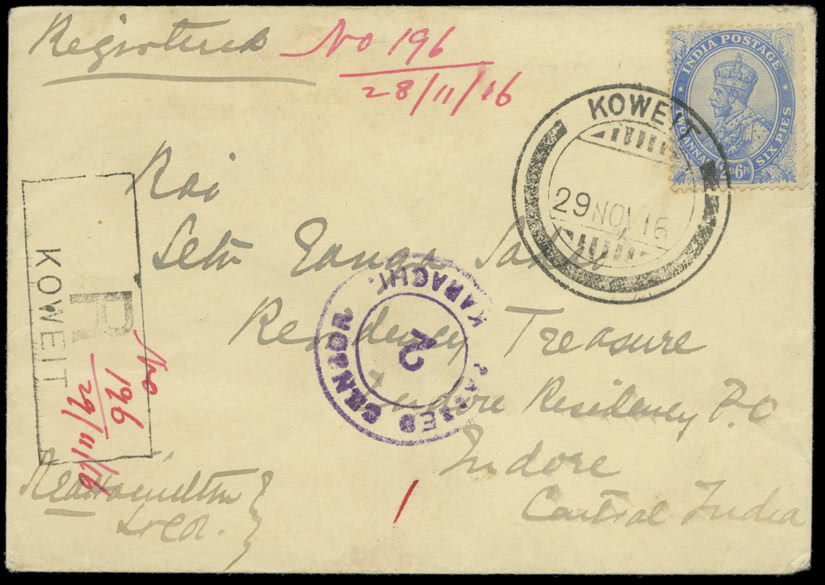 Registered No 196
28/11/16
INDIA POSTAGE
TWO ANNAS
SIX PIES
2As6Ps
KOWEIT
29 NOV 16
Rai
Seth Ganga
Residency Treasure
Indore Residency P.O
Indore
Central India
R
KOWEIT
No 196
29/11/16
PASSED CENSOR
2
KARACHI.
1